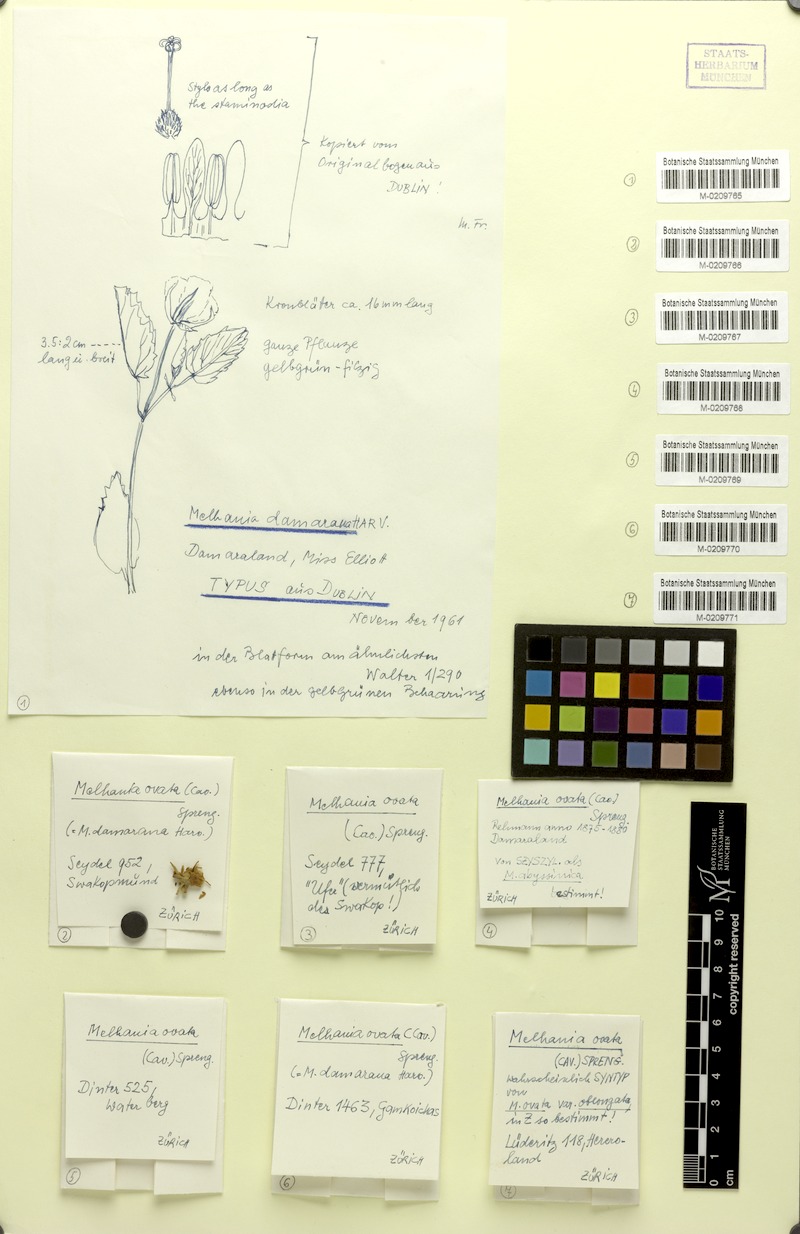 Style as long as
the staminodia
Kopiert vom
Originalbogen aus
DUBLIN !
M. Fr.
Kronbläter ca. 16 mm lang
3.5:2 cm
lang u. breit
ganze Pflanze
gelbgrün-filzig
Melhania damarana HARV.
Damaraland, Miss Elliott
TYPUS aus DUBLIN
November 1961
in der Blatform am ähnlichsten
Walter 1/290
ebenso in der gelbgrünen Behaarung
1
STAATS-
HERBARIUM
MÜNCHEN
1
Botanische Staatssammlung München
M-0209765
2
Botanische Staatssammlung München
M-0209766
3
Botanische Staatssammlung München
M-0209767
4
Botanische Staatssammlung München
M-0209768
5
Botanische Staatssammlung München
M-0209769
6
Botanische Staatssammlung München
M-0209770
7
Botanische Staatssammlung München
M-0209771
Melhania ovata (Cav.)
Spreng.
(= M. damarana Harv.)
Seydel 952,
Swakopmund
ZÜRICH
2
Melhania ovata
(Cav.) Spreng.
Seydel 777
"Ufer" (vermutlich
des Swakop!)
ZÜRICH
3
Melhania ovata (Cav.)
Spreng.
Rehmann anno 1875-1880
Damaraland
von SZYSZYL. als
M. abyssinica
bestimmt!
ZÜRICH
4
Melhania ovata
(Cav.) Spreng.
Dinter 525,
Waterberg
ZÜRICH
5
Melhania ovata (Cav.)
Spreng.
(= M. damarana Harv.)
Dinter 1463, Gamkoichas
ZÜRICH
6
Melhania ovata
(CAV.) SPRENG.
wahrscheinlich SYNTYP
von
M. ovata var. oblongata,
in Z so bestimmt!
Lüderitz 118, Herero-
land
ZÜRICH
7
BOTANISCHE
STAATSSAMMLUNG
MÜNCHEN
copyright reserved
0 1 2 3 4 5 6 7 8 9 10
cm